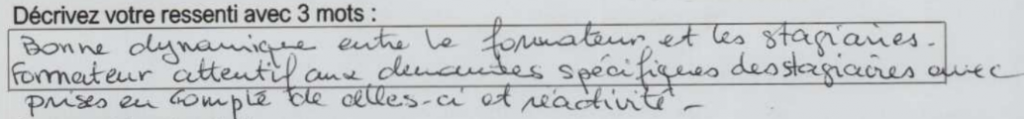 Décrivez votre ressenti avec 3 mots :
Bonne dynamique entre le formateur et les stagiaires.
Formateur attentif aux demandes spécifiques des stagiaires avec
prises en compte de celles-ci et réactivité -